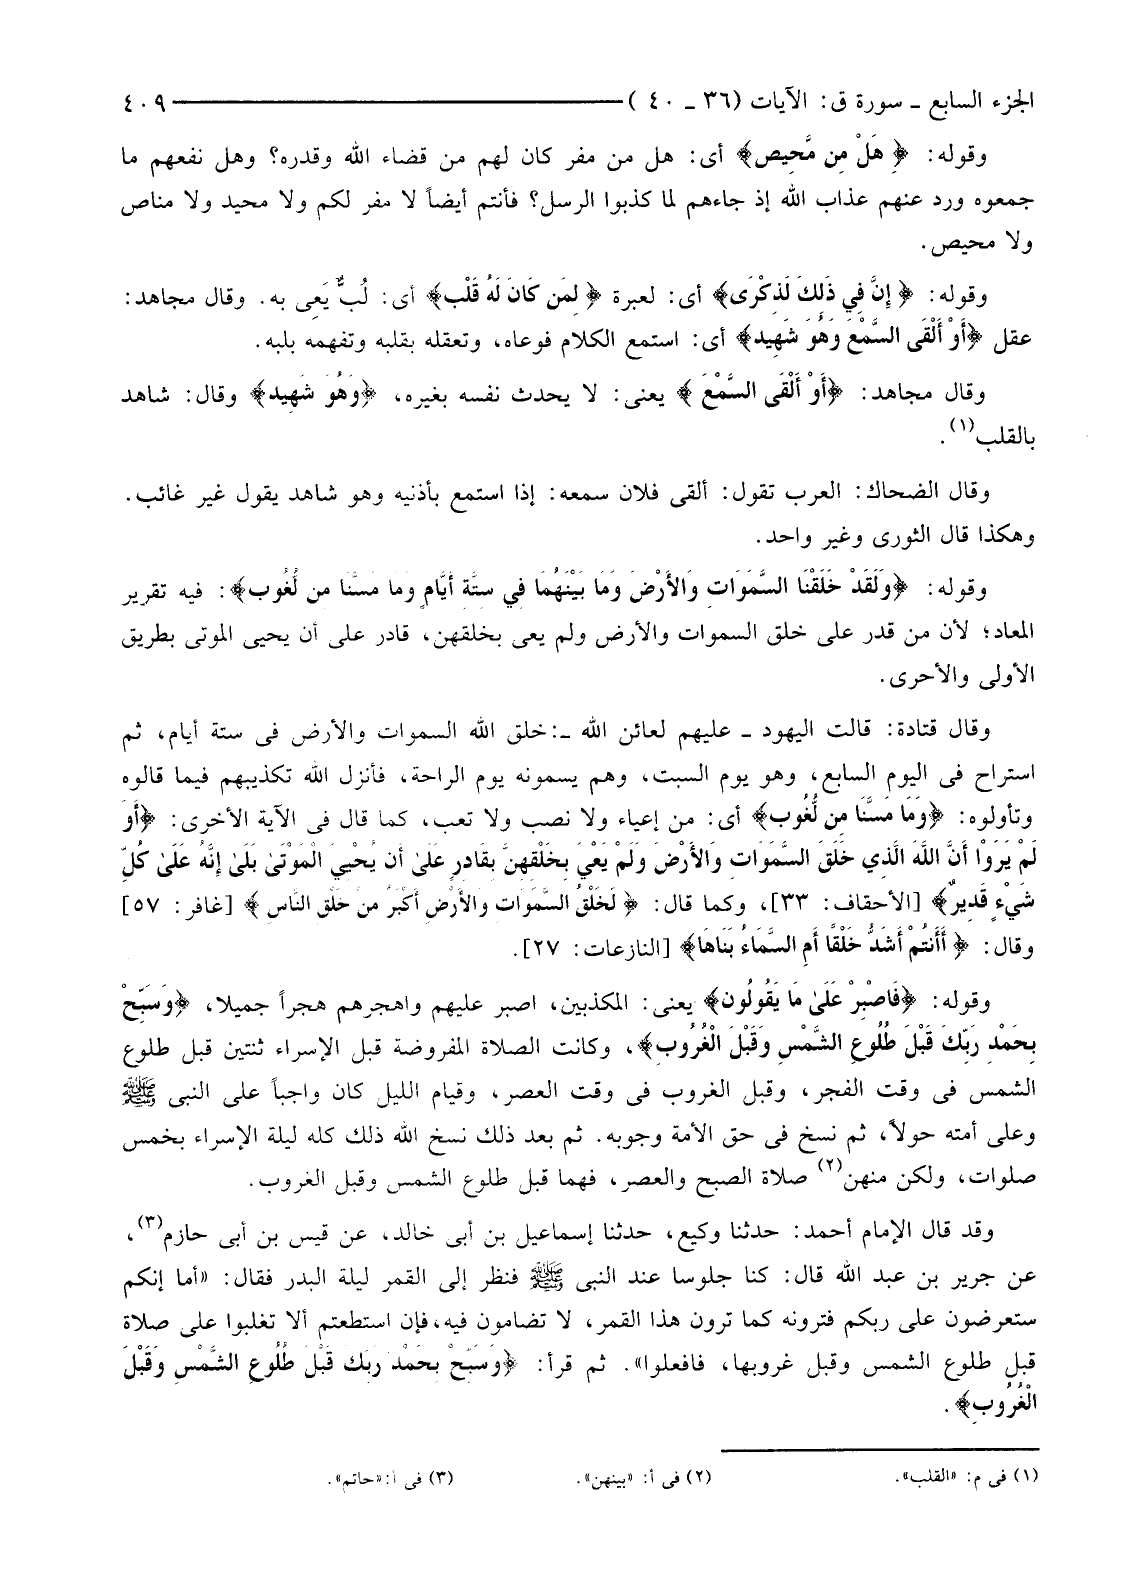 الجزء السابع ـ سورة ق: الآيات (٣٦ ـ ٤٠ ) ٤٠٩
وقوله: ﴿ هَلْ مِن مَّحِيصٍ﴾ أى: هل من مفر كان لهم من قضاء الله وقدره؟ وهل نفعهم ما
جمعوه ورد عنهم عذاب الله إذ جاءهم لما كذبوا الرسل؟ فأنتم أيضاً لا مفر لكم ولا محيد ولا مناص
ولا محيص.
وقوله: ﴿ إِنَّ فِي ذَلِكَ لَذِكْرَى﴾ أى: لعبرة ﴿ لِمَن كَانَ لَهُ قَلْب﴾ أى: لُبٌّ يَعِى به. وقال مجاهد:
عقل ﴿أَوْ أَلْقَى السَّمْعَ وَهُوَ شَهِيد﴾ أى: استمع الكلام فوعاه، وتعقله بقلبه وتفهمه بلبه.
وقال مجاهد: ﴿أَوْ أَلْقَى السَّمْعَ ﴾ يعنى: لا يحدث نفسه بغيره، ﴿وَهُوَ شَهِيد﴾ وقال: شاهد
بالقلب(١).
وقال الضحاك: العرب تقول: ألقى فلان سمعه: إذا استمع بأذنيه وهو شاهد يقول غير غائب.
وهكذا قال الثورى وغير واحد.
وقوله: ﴿وَلَقَدْ خَلَقْنَا السَّمَوَاتِ وَالأَرْضَ وَمَا بَيْنَهُمَا فِي سِتَّةِ أَيَّامٍ وَمَا مَسَّنَا مِن لُّغُوب﴾: فيه تقرير
المعاد؛ لأن من قدر على خلق السموات والأرض ولم يعى بخلقهن، قادر على أن يحيى الموتى بطريق
الأولى والأحرى.
وقال قتادة: قالت اليهود ـ عليهم لعائن الله ـ:خلق الله السموات والأرض فى ستة أيام، ثم
استراح فى اليوم السابع، وهو يوم السبت، وهم يسمونه يوم الراحة، فأنزل الله تكذيبهم فيما قالوه
وتأولوه: ﴿وَمَا مَسَّنَا مِن لُّغُوب﴾ أى: من إعياء ولا نصب ولا تعب، كما قال فى الآية الأخرى: ﴿أَوَ
لَمْ يَرَوْا أَنَّ اللَّهَ الَّذِي خَلَقَ السَّمَوَاتِ وَالأَرْضَ وَلَمْ يَعْيَ بِخَلْقِهِنَّ بِقَادِرٍ عَلَىٰ أَن يُحْيِيَ الْمَوْتَىٰ بَلَىٰ إِنَّهُ عَلَىٰ كُلِّ
شَيْءٍ قَدِيرٌ﴾ [الأحقاف: ٣٣]، وكما قال: ﴿ لَخَلْقُ السَّمَوَاتِ وَالأَرْضِ أَكْبَرُ مِنْ خَلْقِ النَّاسِ ﴾ [غافر: ٥٧]
وقال: ﴿ أَأَنتُمْ أَشَدُّ خَلْقًا أَمِ السَّمَاءُ بَنَاهَا﴾ [النازعات: ٢٧].
وقوله: ﴿فَاصْبِرْ عَلَىٰ مَا يَقُولُون﴾ يعنى: المكذبين، اصبر عليهم واهجرهم هجراً جميلا، ﴿وَسَبِّحْ
بِحَمْدِ رَبِّكَ قَبْلَ طُلُوعِ الشَّمْسِ وَقَبْلَ الْغُرُوب﴾، وكانت الصلاة المفروضة قبل الإسراء ثنتين قبل طلوع
الشمس فى وقت الفجر، وقبل الغروب فى وقت العصر، وقيام الليل كان واجباً على النبى ﷺ
وعلى أمته حولاً، ثم نسخ فى حق الأمة وجوبه. ثم بعد ذلك نسخ الله ذلك كله ليلة الإسراء بخمس
صلوات، ولكن منهن(٢) صلاة الصبح والعصر، فهما قبل طلوع الشمس وقبل الغروب.
وقد قال الإمام أحمد: حدثنا وكيع، حدثنا إسماعيل بن أبى خالد، عن قيس بن أبى حازم(٣)،
عن جرير بن عبد الله قال: كنا جلوسا عند النبى ﷺ فنظر إلى القمر ليلة البدر فقال: «أما إنكم
ستعرضون على ربكم فترونه كما ترون هذا القمر، لا تضامون فيه،فإن استطعتم ألا تغلبوا على صلاة
قبل طلوع الشمس وقبل غروبها، فافعلوا». ثم قرأ: ﴿وَسَبِّحْ بِحَمْدِ رَبِّكَ قَبْلَ طُلُوعِ الشَّمْسِ وَقَبْلَ
الْغُرُوب﴾.
(١) فى م: «القلب». (٢) فى أ: «بينهن». (٣) فى أ:«حاتم».